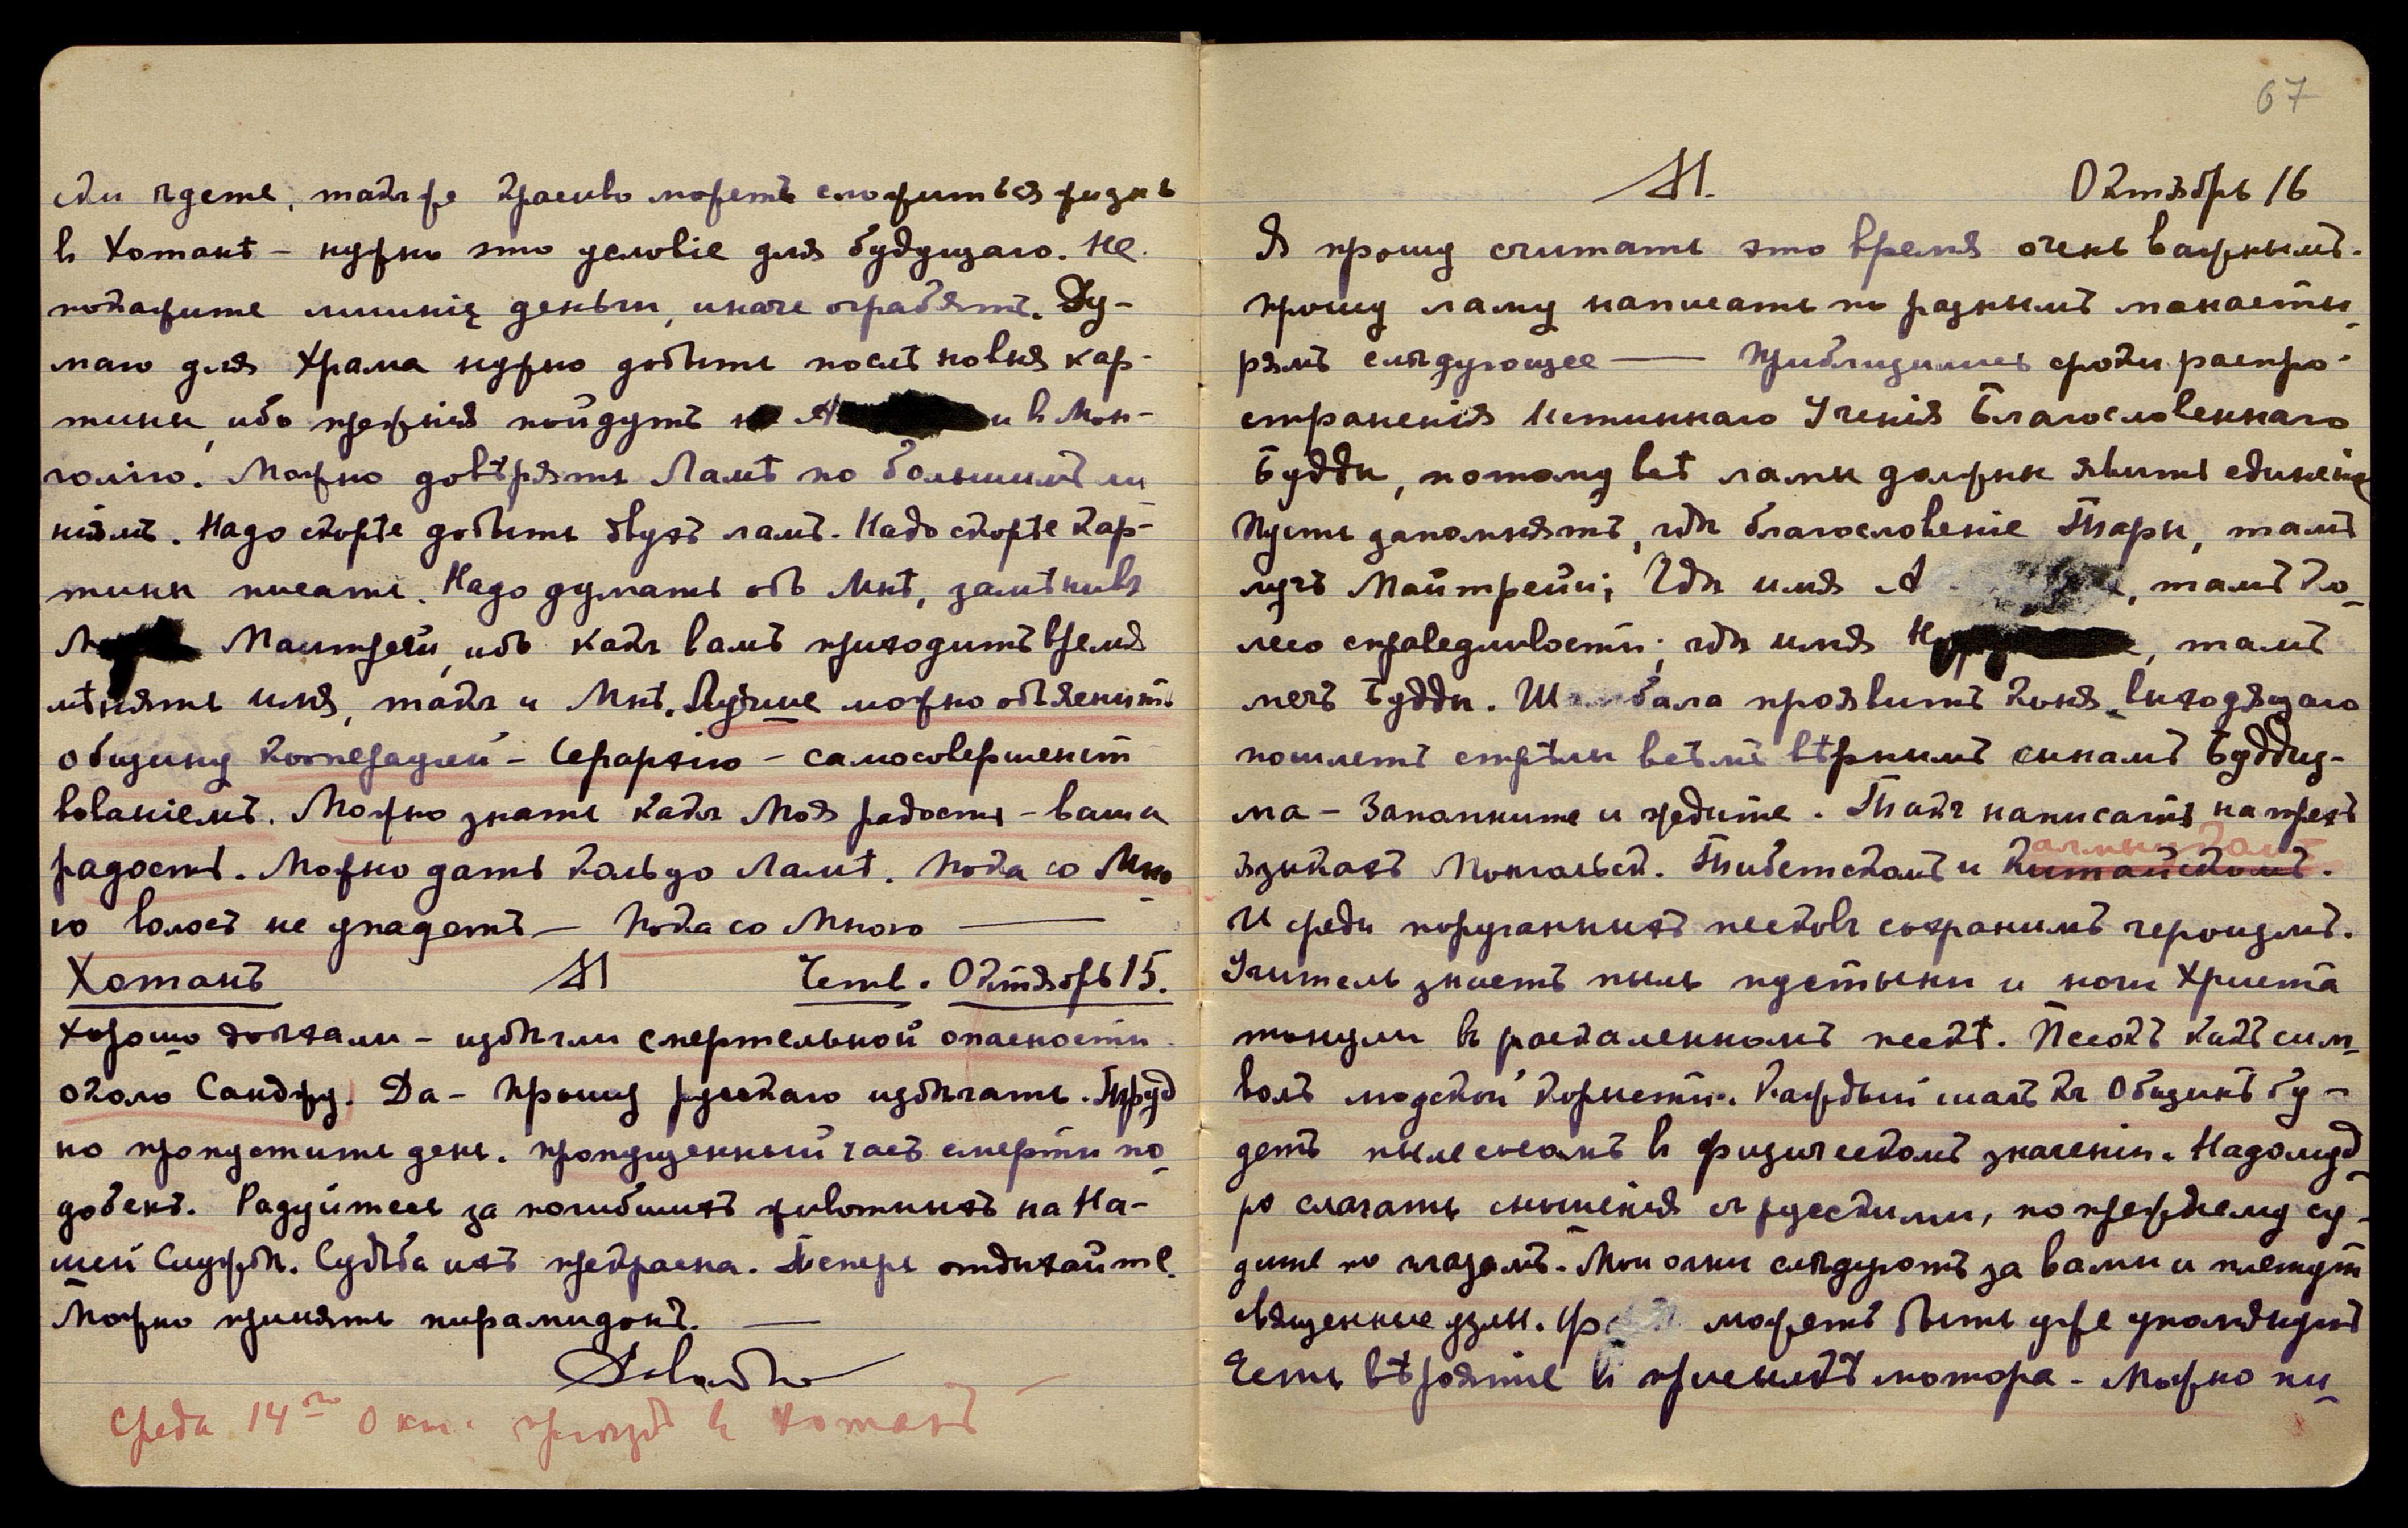 сти ѣдете, такъ же красиво можетъ сложиться жизнь
в Хотанѣ – нужно это условіе для будущаго. Не
покажите лишнія деньги, иначе ограбятъ. Ду-
маю для Храма нужно добыть послѣ новыя кар-
тины, ибо прежнія пойдутъ и в Мон-
голію. Можно довѣрять Ламѣ по большимъ ли
ніямъ. Надо скорѣе добыть двухъ ламъ. Надо скорѣе кар-
тины писать. Надо думать объ Мнѣ, замѣнивъ
М Маитрейи, ибо какъ вамъ приходитъ время
мѣнять имя, такъ и Мнѣ. Лучше можно объяснить
общину коопераціей – Іерархію – самосовершенст
вованіемъ. Можно знать какъ Моя радость – ваша
радость. Можно дать кольцо Ламѣ. Пока со Мно
ю волосъ не упадетъ – Пока со Мною —
Хотанъ М Четв. Октябрь 15.
Хорошо доѣхали – избѣгли смертельной опасности
около Санджу. Да – Прошу русскаго избѣгать. Труд
но пропустить день. Пропущенный часъ смерти по
добенъ. Радуйтесь за погибшихъ животныхъ на На-
шей Службѣ. Судьба ихъ прекрасна. Теперь отдыхайте.
Можно принять пирамидонъ. —
Довольно
Среда 14го Окт. пріѣздъ в Хотанъ
67
М. Октябрь 16
Я прошу считать это время очень важнымъ.
Прошу ламу написать по разнымъ монасты-
рямъ слѣдующее — Приблизились сроки распро-
страненія Истиннаго Ученія Благословеннаго
Будды, потому всѣ ламы должны явить единеніе
Пусть запомнятъ, гдѣ благословеніе Тары, тамъ
лучъ Майтрейи; Гдѣ имя А , тамъ ко-
лесо справедливости; гдѣ имя Н , тамъ
мечъ Будды. Шамбала проявитъ коня, выходящаго
пошлетъ стрѣлы всѣмъ вѣрнымъ сынамъ Буддиз-
ма – Запомните и ждите. Такъ написать на трехъ
языкахъ Монгольск. Тибетскомъ и Китайскомъ.
И среди поруганныхъ песковъ сохранимъ героизмъ.
Учитель знаетъ пыль пустыни и ноги Христа
тонули в раскаленномъ пескѣ. Песокъ какъ сим-
волъ людской корысти. Каждый шагъ къ Общинѣ бу-
детъ в физическомъ значеніи. Надо муд
ро слагать сношенія съ русскими, по прежнему су-
дите по глазамъ. Мои огни слѣдуютъ за вами и плетутъ
священные узлы. можетъ быть уже упомянутъ
Есть вѣроятіе в присылкѣ мотора – Можно пи-